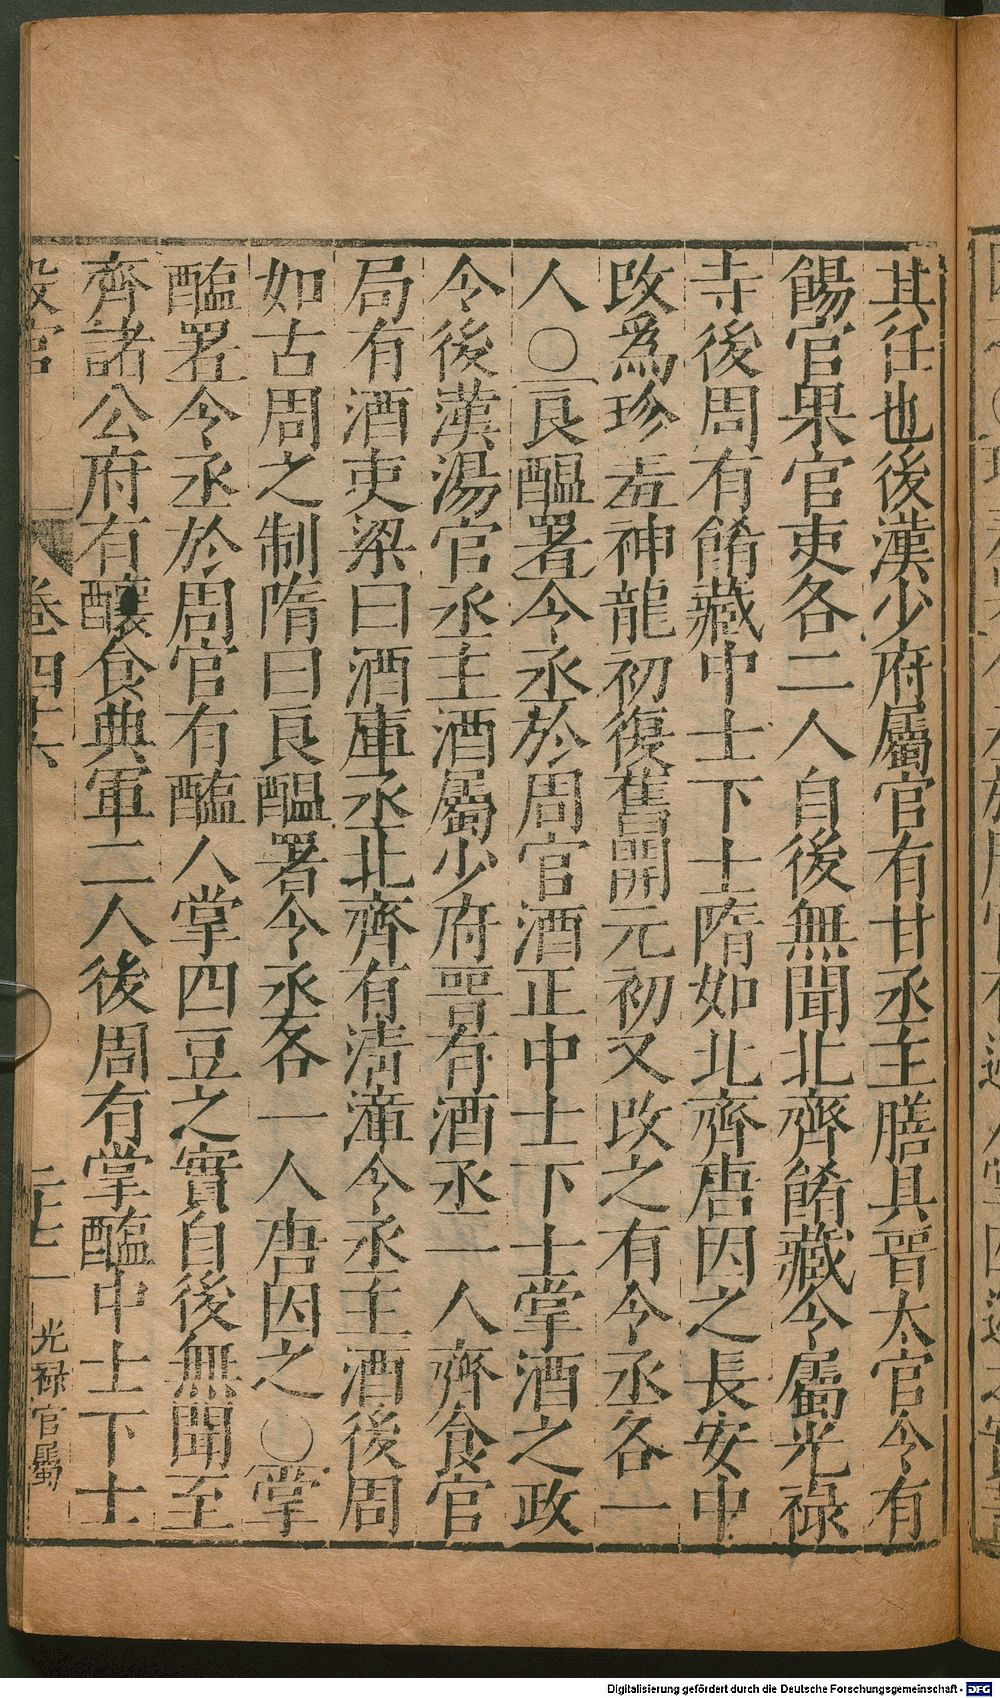 其任也後漢少府屬官有甘丞主膳具晉太官令有
餳官果官吏各二人自後無聞北齊餚藏令屬光祿
寺後周有餚藏中士下士隋如北齊唐因之長安中
改爲珍羞神龍初復舊開元初又改之有令丞各一
人○良醞署令丞於周官酒正中士下士掌酒之政
令後漢湯官丞主酒屬少府晉有酒丞一人齊食官
局有酒吏梁曰酒庫丞北齊有清漳令丞主酒後周
如古周之制隋曰良醞署令丞各一人唐因之○掌
醢署令丞於周官有醢人掌四豆之實自後無聞至
齊諸公府有釀食典軍二人後周有掌醢中士下士
設官
卷四十六
二十七
光祿官屬
Digitalisierung gefördert durch die Deutsche Forschungsgemeinschaft - DFG